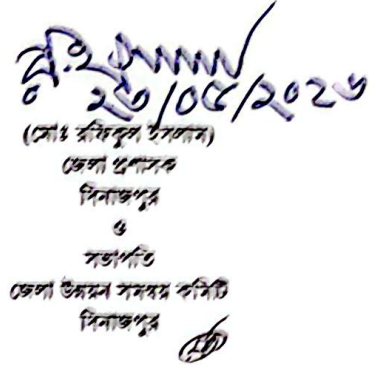 ২৬/০৫/২০২৬
(মোঃ রফিকুল ইসলাম)
জেলা প্রশাসক
দিনাজপুর
ও
সভাপতি
জেলা উন্নয়ন সমন্বয় কমিটি
দিনাজপুর